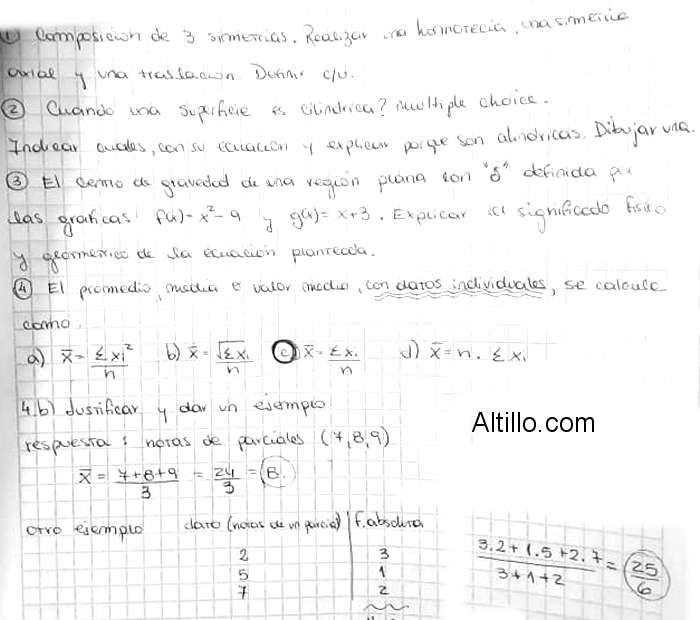 ① Composición de 3 simetrías. Realizar una homotecia, una simetría
axial y una traslación. Definir c/u.
② Cuando una superficie es cilíndrica? multiple choice.
Indicar cuales, con su ecuación y explicar porque son cilíndricas. Dibujar una.
③ El centro de gravedad de una región plana con "δ" definida por
las graficas: f(x)= x²-9 y g(x)= x+3. Explicar el significado físico
y geometrico de la ecuación planteada.
④ El promedio, media o valor medio, con datos individuales, se calcula
como.
a) x̄ = Σxi²/n b) x̄ = √Σxi/n c) x̄ = Σxi/n d) x̄ = n. Σxi
4.b) Justificar y dar un ejemplo
respuesta: notas de parciales (7,8,9)
x̄ = 7+8+9/3 = 24/3 = 8.
otro ejemplo dato (notas de un parcial) F. absoluta
2 3
5 1
7 2
3.2+1.5+2.7/3+1+2 = 25/6
Altillo.com